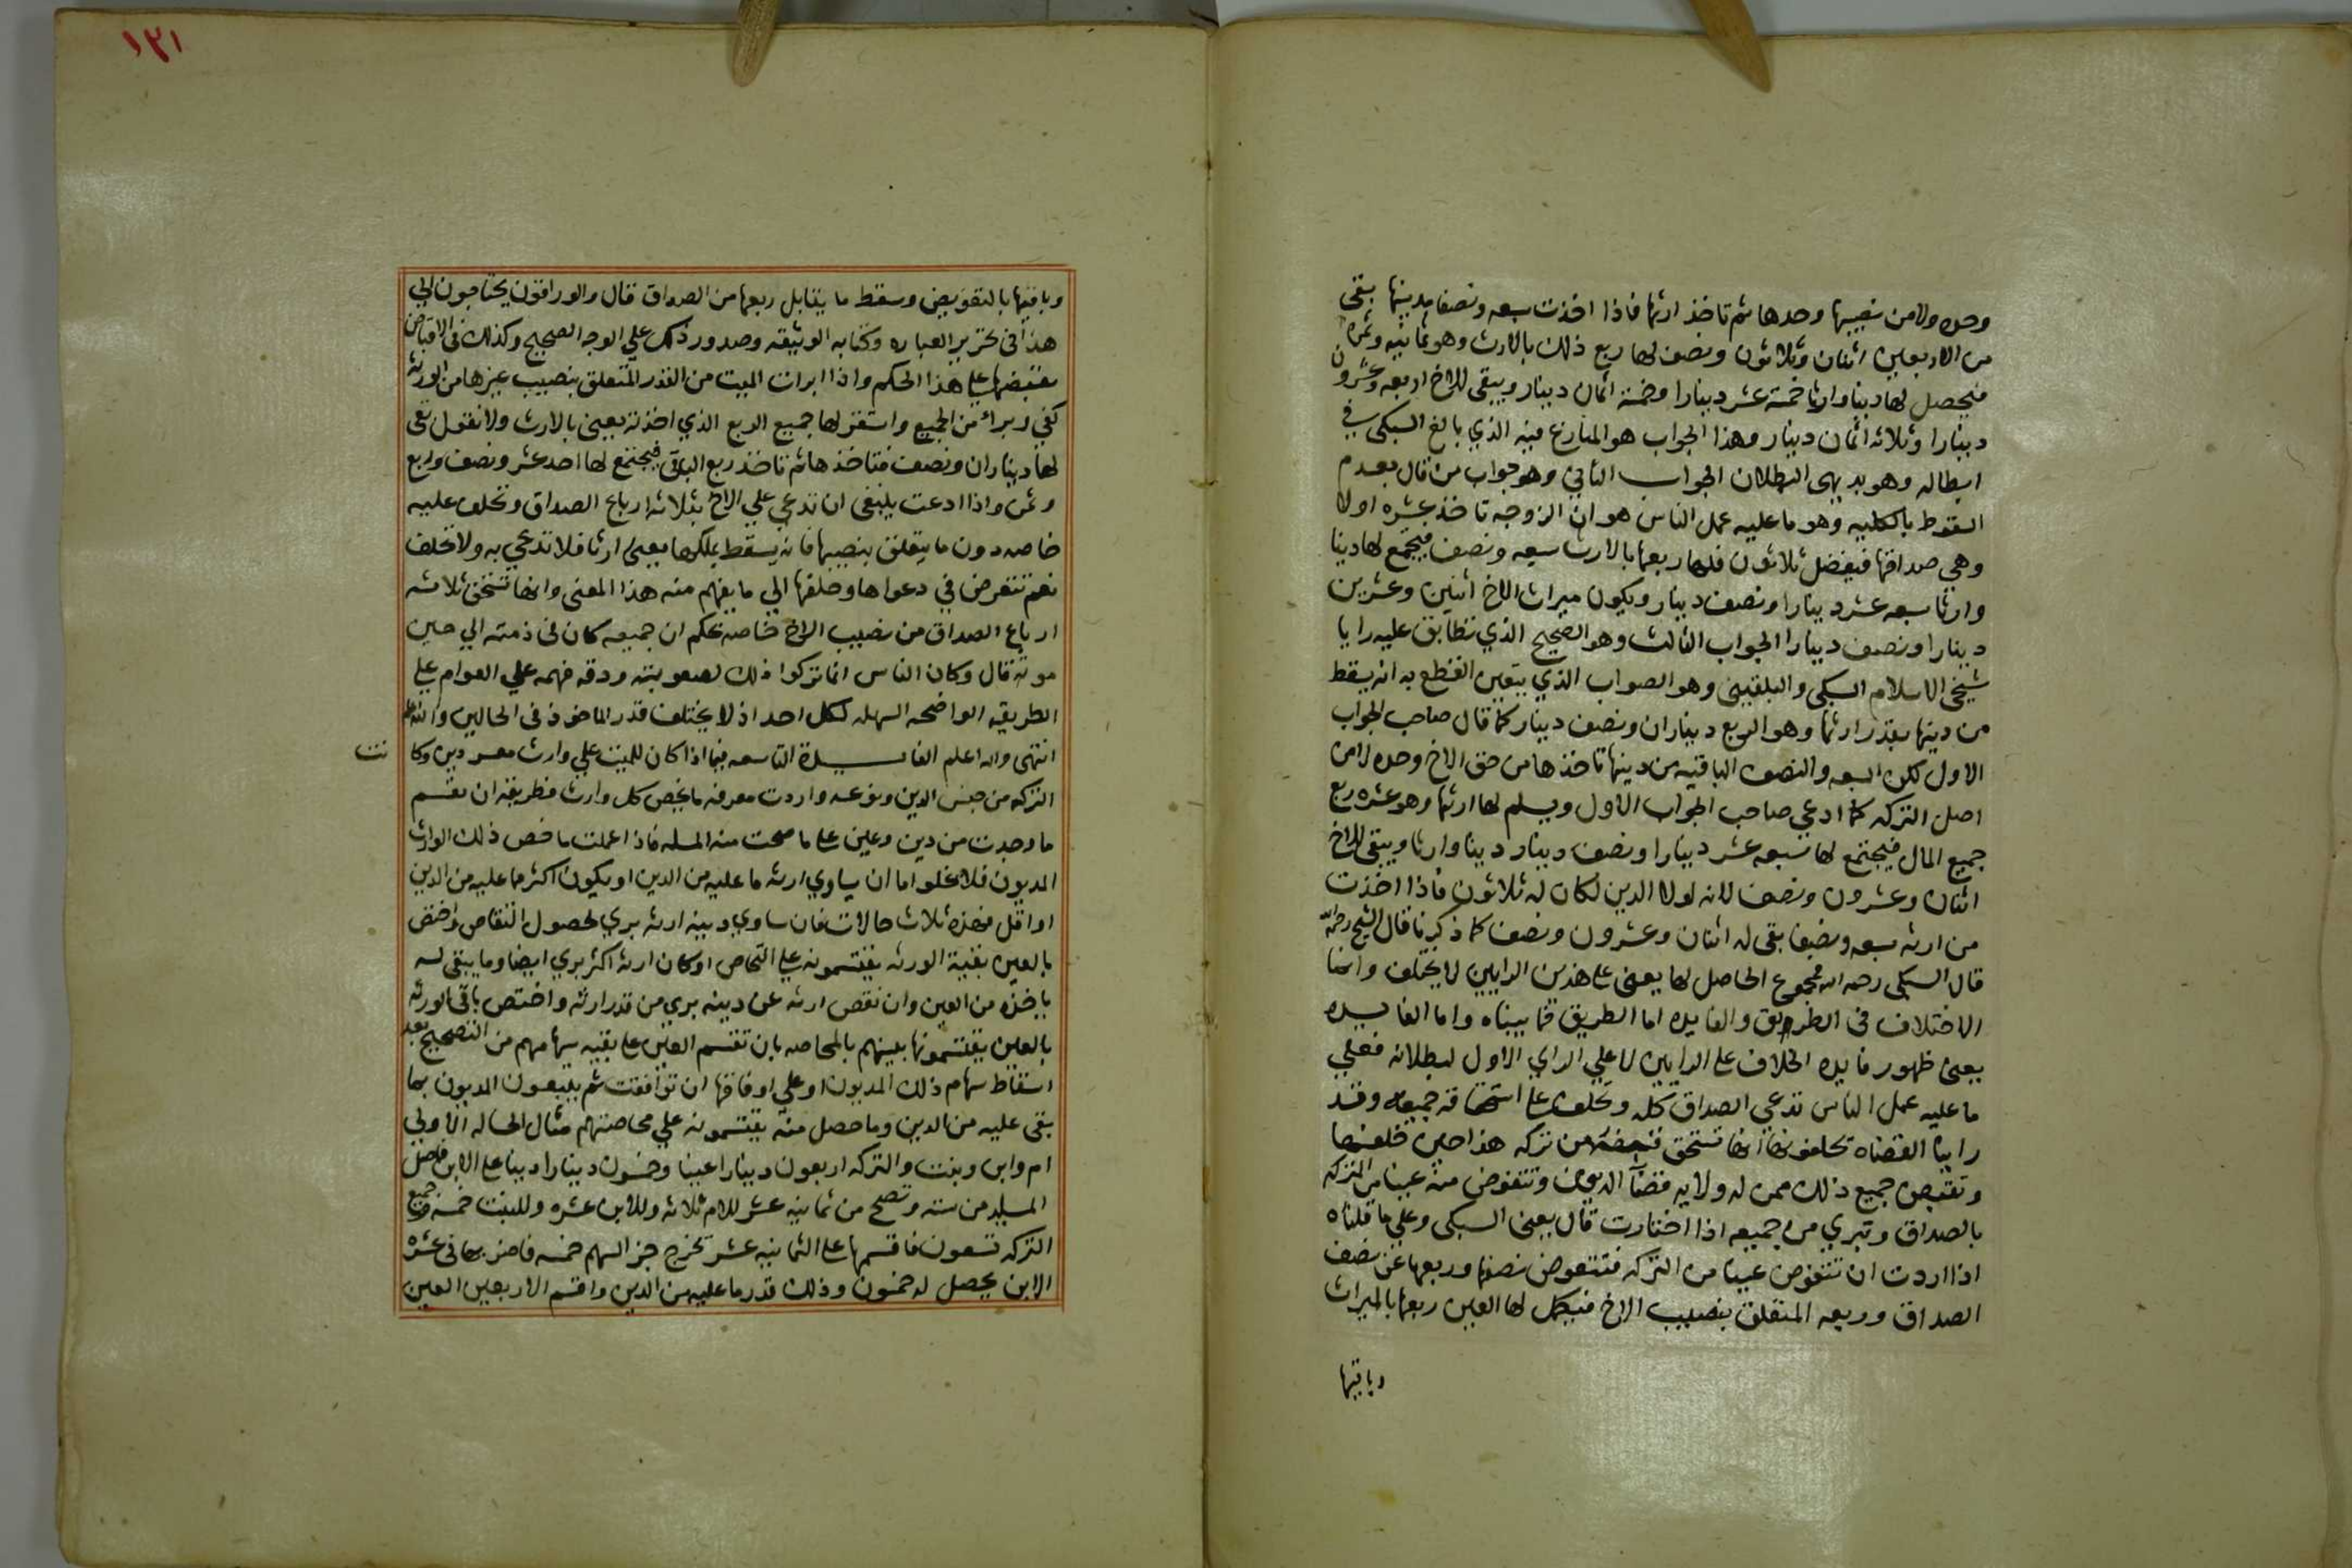 وحده ولا من نصيبها وحدها ثم تاخذ ارثها فاذا اخذت سبعه ونصفا بدينها بقى
من الاربعين اثنان وثلاثون ونصف لها ربع ذلك بالارث وهو ثمانيه وثمن
فيحصل لها دينا وارثا خمسة عشر دينارا وخمسة اثمان دينار ويبقى للاخ اربعه وعشرون
دينارا وثلاثه اثمان دينار وهذا الجواب هو المنازع فيه الذي بالغ السبكى في
ابطاله وهو بديهى البطلان الجواب الثاني وهو جواب من قال بعدم
السقوط بالكليه وهو ما عليه عمل الناس هو ان الزوجه تاخذ عشره اولا
وهي صداقها فيفضل ثلاثون فلها ربعها بالارث سبعه ونصف فيجتمع لها دينا
وارثا سبعه عشر دينارا ونصف دينار ويكون ميراث الاخ اثنين وعشرين
دينارا ونصف دينار الجواب الثالث وهو الصحيح الذي تطابق عليه رايا
شيخى الاسلام السبكى والبلقينى وهو الصواب الذي يتعين القطع به انه يسقط
من دينها بقدر ارثها وهو الربع ديناران ونصف دينار كما قال صاحب الجواب
الاول لكن السبعه والنصف الباقيه من دينها تاخذها من حق الاخ وحده لا من
اصل التركه كما ادعي صاحب الجواب الاول ويسلم لها ارثها وهو عشره ربع
جميع المال فيجتمع لها سبعه عشر دينارا ونصف دينار دينا وارثا ويبقى للاخ
اثنان وعشرون ونصف لانه لولا الدين لكان له ثلاثون فاذا اخذت
من ارثه سبعه ونصفا بقى له اثنان وعشرون ونصف كما ذكرنا قال الشيخ رحمه الله
قال السبكى رحمه الله فمجموع الحاصل لها يعنى على هذين الرايين لا يختلف وانما
الاختلاف فى الطريق والفايده اما الطريق فما بيناه واما الفايده
يعنى ظهور فايده الخلاف على الرايين لا علي الراي الاول لبطلانه فعلي
ما عليه عمل الناس تدعي الصداق كله وتحلف على استحقاقه جميعه وقد
راينا القضاه يحلفونها انها تستحق قبضه من تركه هذا حين حلفها
وتقبض جميع ذلك ممن له ولايه قضآ الديون وتتعوض منه عينا من التركه
بالصداق وتبري من جميعه اذا اختارت قال يعنى السبكى وعلي ما قلناه
اذا اردت ان تتعوض عينا من التركه فتتعوض نصفها وربعها عن نصف
الصداق وربعه المتعلق بنصيب الاخ فيكمل لها العين ربعها بالميراث
وباقيها
١٣١
وباقيها بالتعويض وسقط ما يقابل ربعها من الصداق قال والوراقون يحتاجون الي
هذا فى تحرير العباره وكتابه الوثيقه وصدور ذلك علي الوجه الصحيح وكذلك فى الاقباض
يقبضها على هذا الحكم واذا ابرات الميت من القدر المتعلق بنصيب غيرها من الورثه
كفي وبراء من الجميع واستقر لها جميع الربع الذي اخذته يعنى بالارث ولا نقول بقى
لها ديناران ونصف فتاخذها ثم تاخذ ربع الباقى فيجتمع لها احد عشر ونصف وربع
وثمن واذا ادعت ينبغى ان تدعي علي الاخ بثلاثه ارباع الصداق وتحلف عليه
خاصه دون ما يتعلق بنصيبها فانه يسقط بملكها يعنى ارثا فلا تدعي به ولا تحلف
نعم تتعرض في دعواها وحلفها الي ما يفهم منه هذا المعنى وانها تستحق ثلاثه
ارباع الصداق من نصيب الاخ خاصه بحكم ان جميعه كان فى ذمته الي حين
موته قال وكان الناس انما تركوا ذلك لصعوبته ودقه فهمه علي العوام على
الطريقه الواضحه السهله لكل احد اذ لا يختلف قدر الماخوذ فى الحالين والله اعلم
انتهى والله اعلم الفايدة التاسعه فيما اذا كان للميت علي وارث معه دين وكا
نت
التركه من جنس الدين ونوعه واردت معرفه ما يخص كل وارث فطريقه ان تقسم
ما وجدت من دين وعين على ما صحت منه المسله فاذا علمت ما خص ذلك الوارث
المديون فلا تخلوا اما ان يساوي ارثه ما عليه من الدين او يكون اكثر مما عليه من الدين
او اقل فهذه ثلاث حالات فان ساوي دينه ارثه بري لحصول التقاص واختص
بالعين بقية الورثه يقتسمونه على التحاص او كان ارثه اكثر بري ايضا وما يبقى له
ياخذه من العين وان نقص ارثه عن دينه بري من قدر ارثه واختص باقى الورثه
بالعين يقتسمونها بينهم بالمحاصه بان تقسم العين على بقيه سهامهم من التصحيح بعد
اسقاط سهام ذلك المديون او علي اوفاقها ان توافقت ثم يتبعون المديون بما
بقى عليه من الدين وما حصل منه يقتسمونه علي محاصتهم مثال الحاله الاولي
ام وابن وبنت والتركه اربعون دينارا عينا وخمسون دينارا دينا على الابن فاصل
المسله من سته وتصح من ثمانيه عشر للام ثلاثه وللابن عشره وللبنت خمسه وجميع
التركه تسعون فاقسمها على الثمانيه عشر تخرج جز السهم خمسه فاضربها فى عشره
الابن يحصل له خمسون وذلك قدر ما عليه من الدين واقسم الاربعين العين